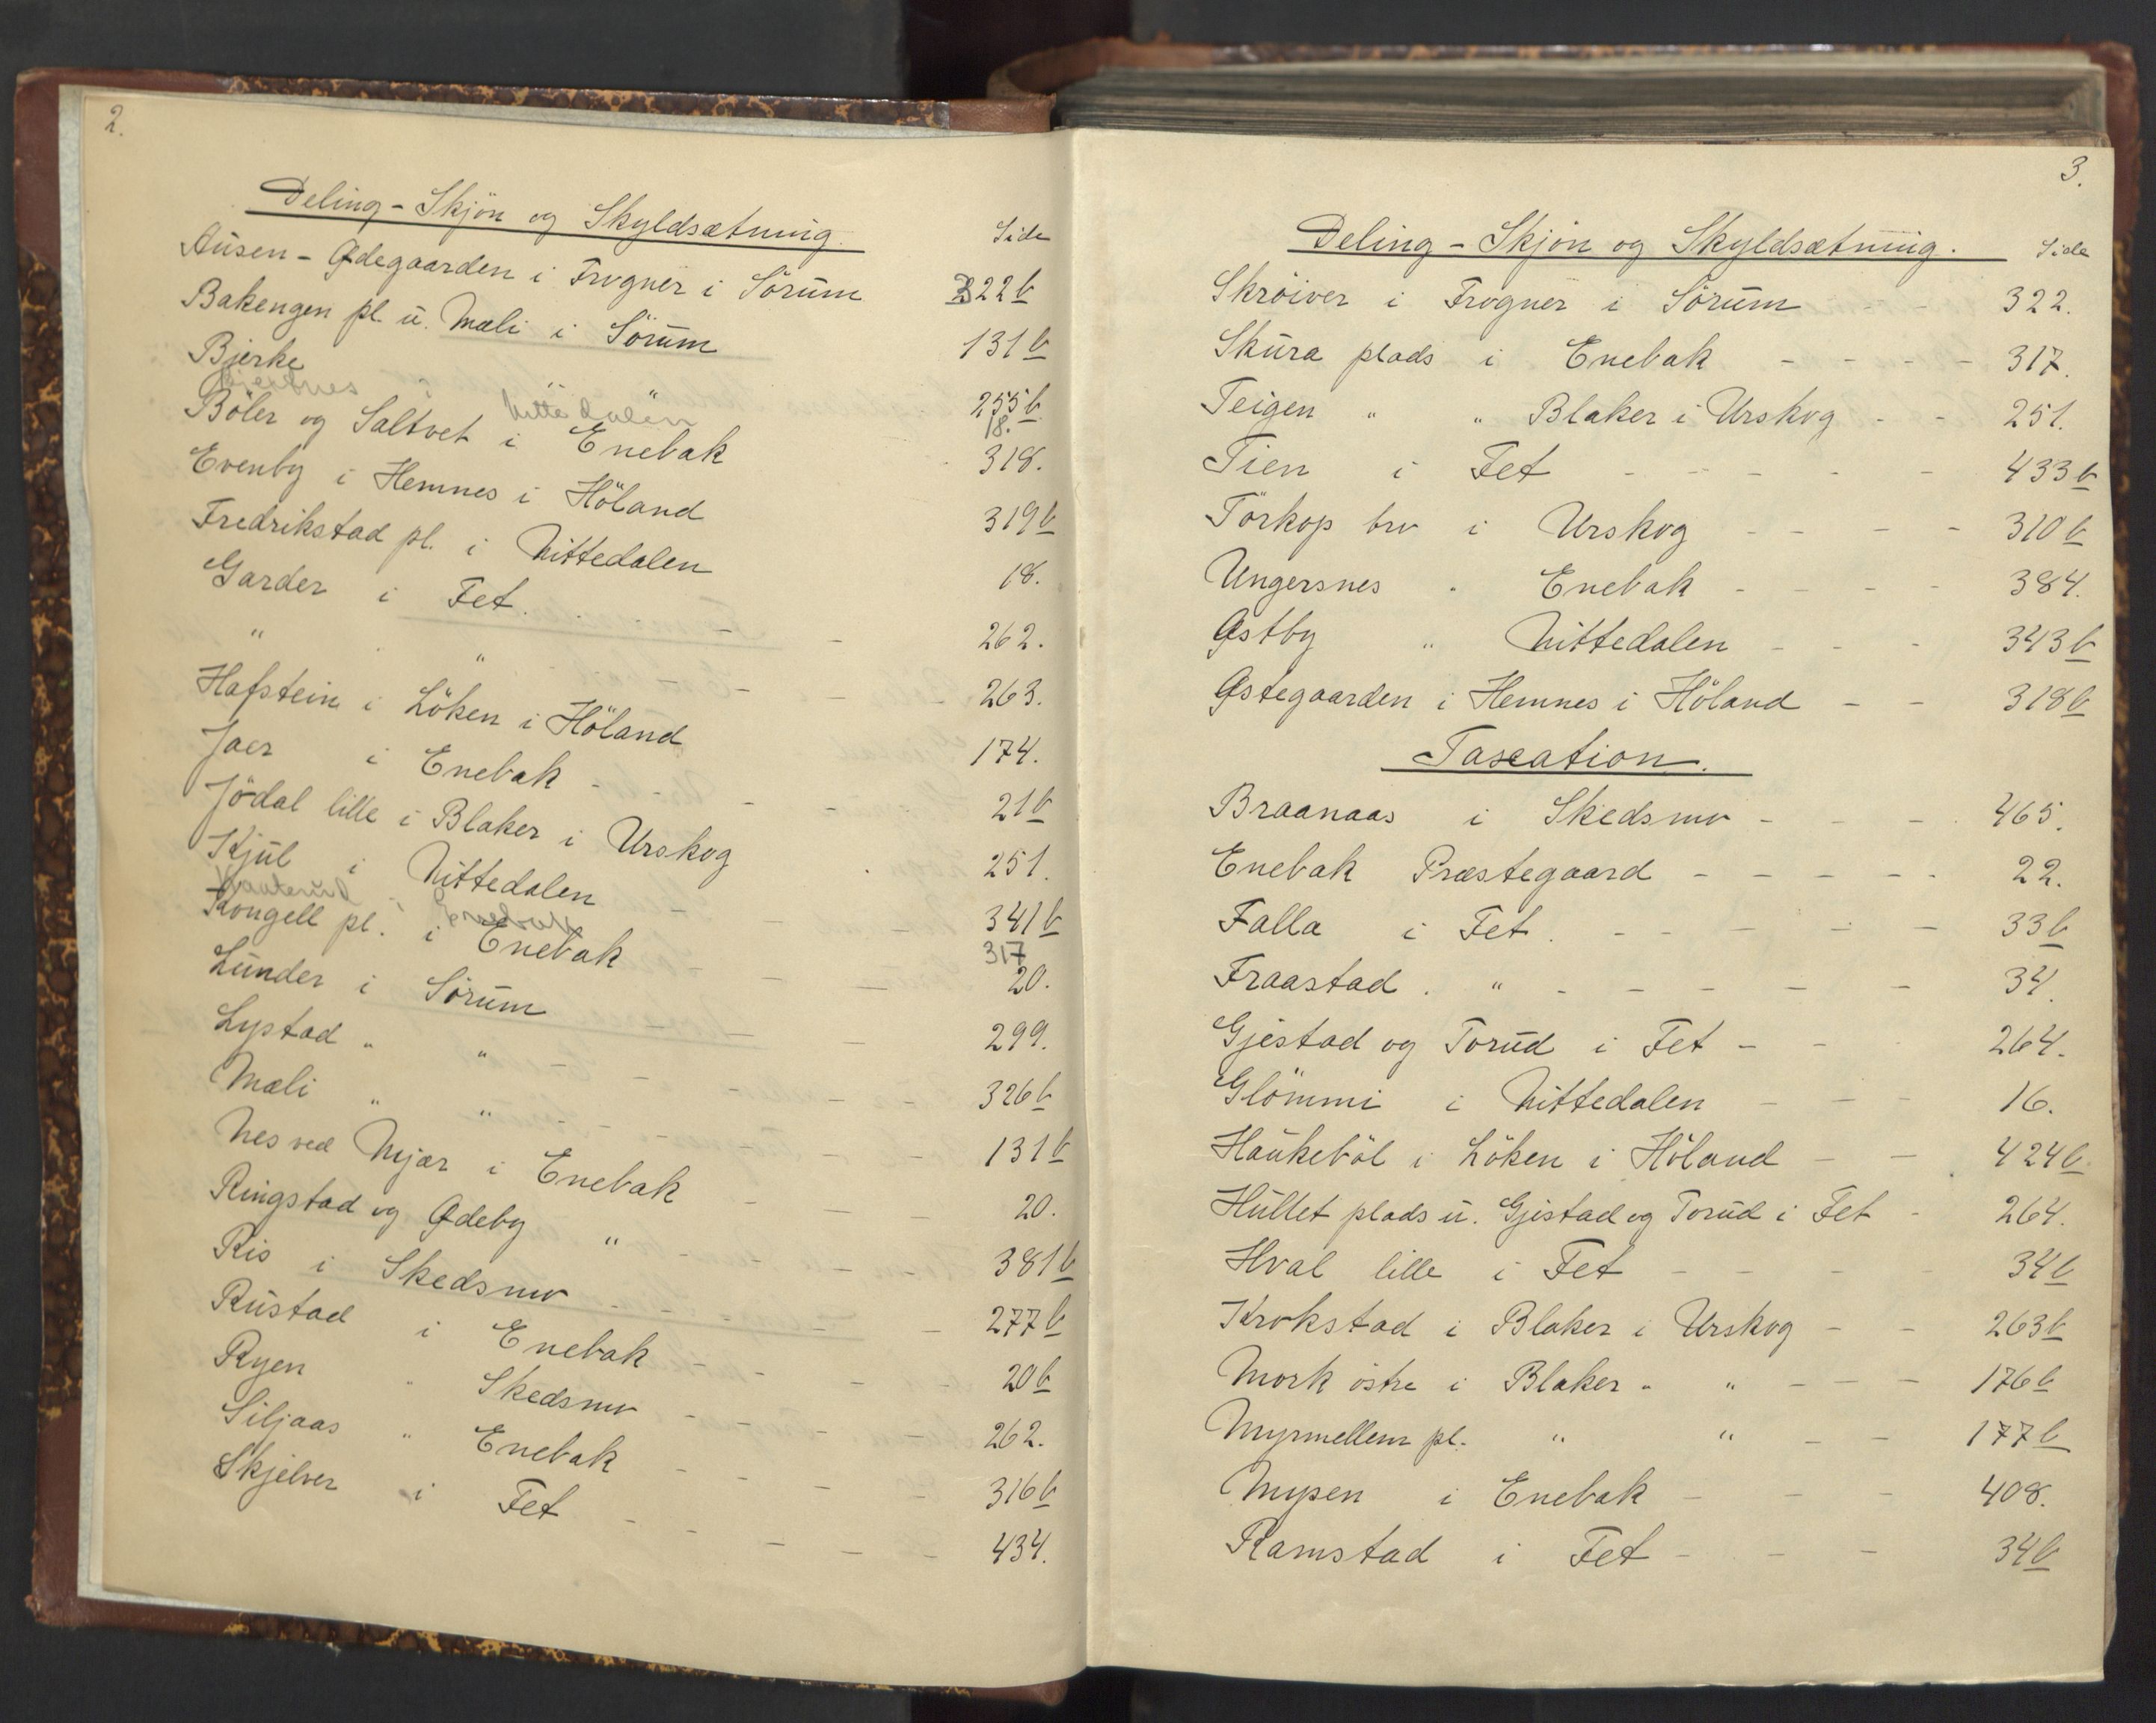 2.
Deling - Skjön og Skyldsætning. Side
Ausen - Ødegaarden i Frogner i Sörum 322b
Bakengen pl. u. Mæli i Sörum 131b
Bjerke " " 255b
Bjertnes i Nittedalen 18.
Böler og Saltvet i Enebak 318.
Evenby i Hemnes i Höland 319b
Fredrikstad pl. i Nittedalen 18.
Garder i Fet. 262.
" " 263.
Hafstein i Löken i Höland 174.
Jaer i Enebak 21b
Jödal lille i Blaker i Urskog 251.
Kjul i Nittedalen 341b
i Enebak 317
Kongell pl. i Enebak 20.
Lunder i Sörum 299.
Lystad " " 326b
Mæli " " 131b
Nes ved Mjær i Enebak 20.
Ringstad og Ødeby " 381b
Ris i Skedsmo 277b
Rustad i Enebak 20b
Ryen " Skedsmo 262.
Siljaas " Enebak 316b
Skjelver i Fet 434.
3.
Deling - Skjön og Skyldsætning. Side
Skröiver i Frogner i Sörum 322.
Skura plads i Enebak 317.
Teigen " " Blaker i Urskog 251.
Tien i Fet 433b
Törkop bro i Urskog 310b
Ungersnes " Enebak 384.
Østby " Nittedalen 343b
Østegaarden i Hemnes i Höland 318b
Taxation.
Braanaas i Skedsmo 465.
Enebak Præstegaard 22.
Falla i Fet. 33b
Fraastad . " 34.
Gjestad og Torud i Fet 264.
Glömmi i Nittedalen 16.
Haukeböl i Löken i Höland 424b
Hullet plads u. Gjestad og Torud i Fet 264.
Hval lille i Fet 34b
Krokstad i Blaker i Urskog 263b
Mork östre i Blaker " " 176b
Myrmellem pl. " " 177b
Mysen i Enebak 408.
Ramstad i Fet 34b